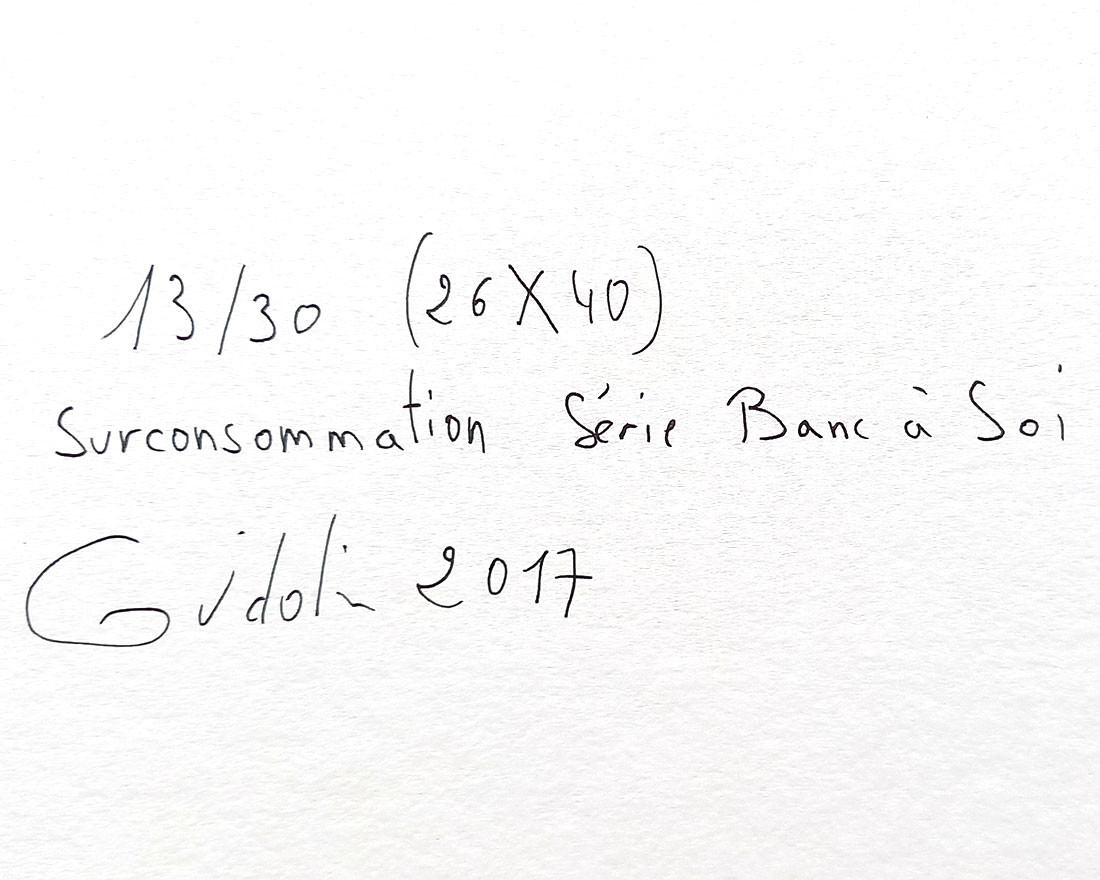 13/30 (26X40)
Surconsommation Série Banc à Soi
Guidolin 2017